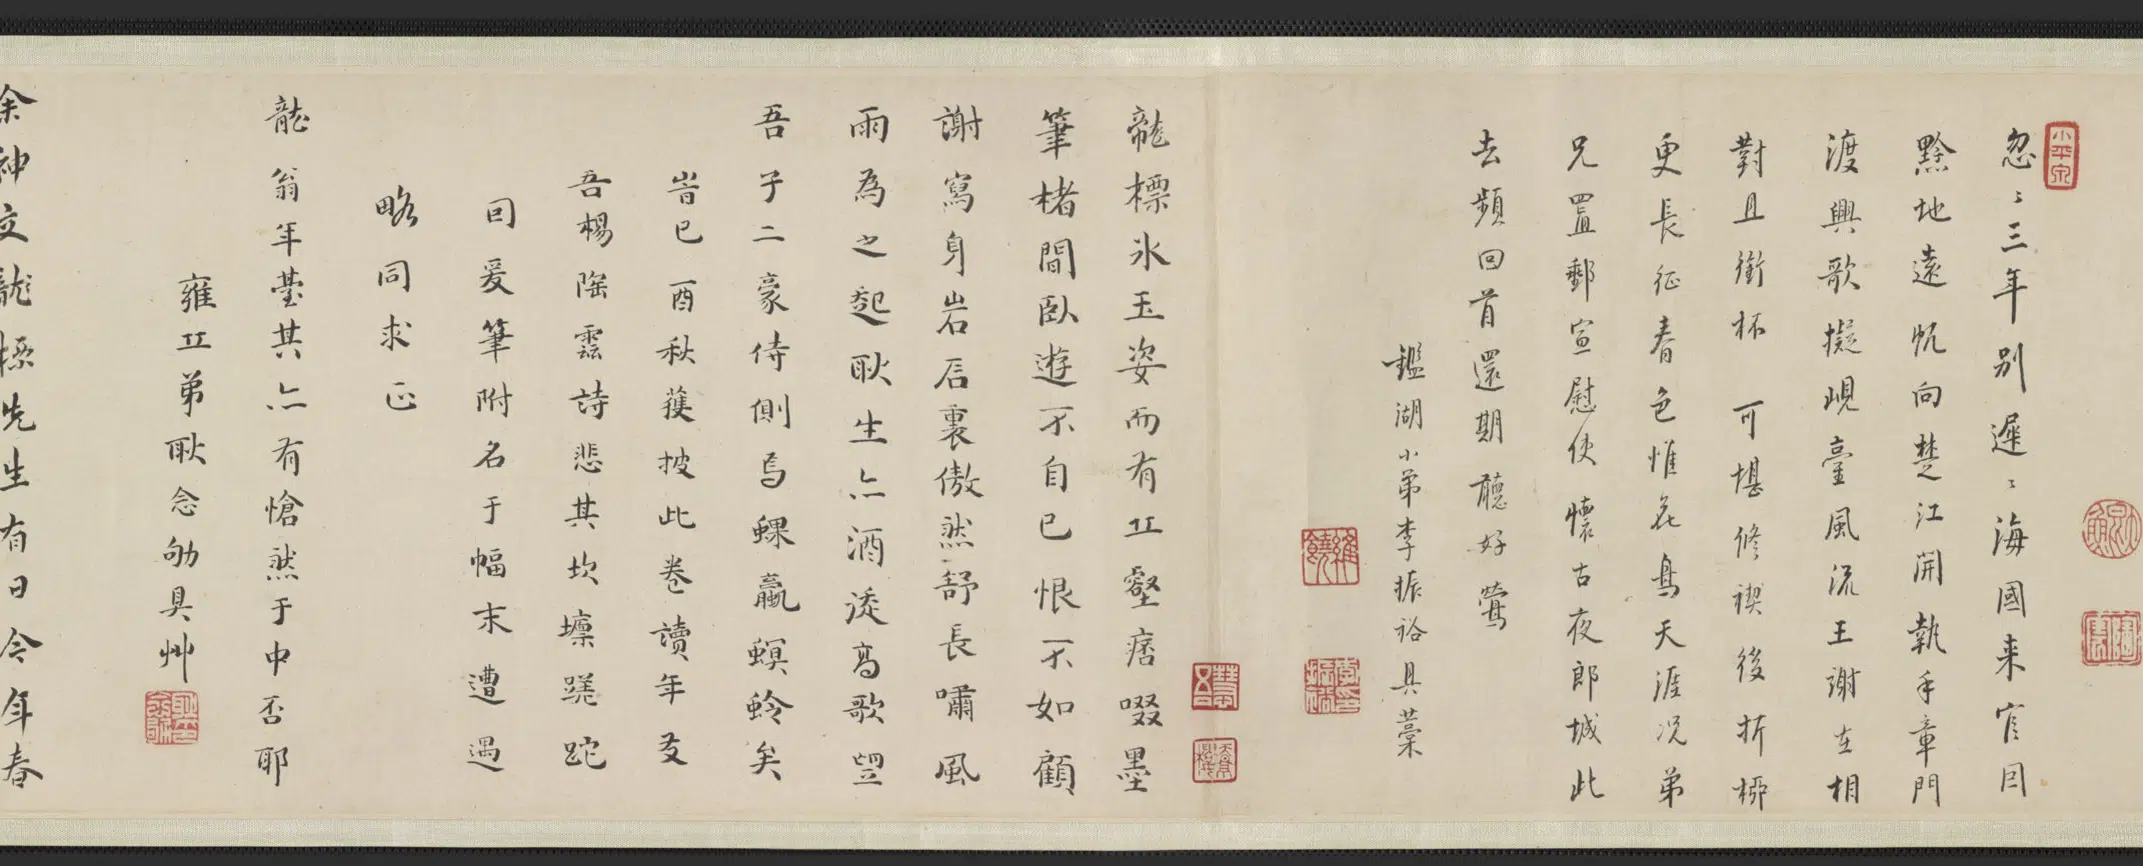 忽〻三年別遲〻海國来官因
黔地遠帆向楚江開執手章門
渡興歌擬峴臺風流王謝在相
對且銜杯可堪修禊後折柳
更長征春色惟花鳥天涯況弟
兄置郵宣慰使懷古夜郎城此
去頻回首還期聽好鶯
鑑湖小弟李振裕具藁
龍標氷玉姿而有丘壑癖啜墨
筆楮間臥遊不自已恨不如顧
謝寫身岩后裏傲然舒長嘯風
雨為之起耿生亦酒後高歌望
吾子二豪侍側焉蜾蠃螟蛉矣
旹己酉秋蒦披此卷讀年友
吾楊陶雲詩悲其坎壈蹉跎
囘爰筆附名于幅末遭遇
略同求正
龍翁年臺其亦有愴然于中否耶
雍丘弟耿念劬具艸
余神交龍標先生有日今年春